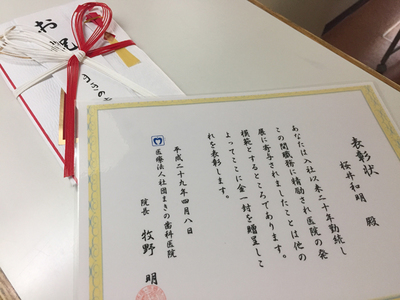 表彰状
桜井和明 殿
あなたは入社以来二十年勤続し
この間職務に精励され医院の発
展に寄与されましたことは他の
模範とするところであります。
よってここに金一封を贈呈しこ
れを表彰します。
平成二十九年四月八日
医療法人社団まきの歯科医院
院長 牧野 明